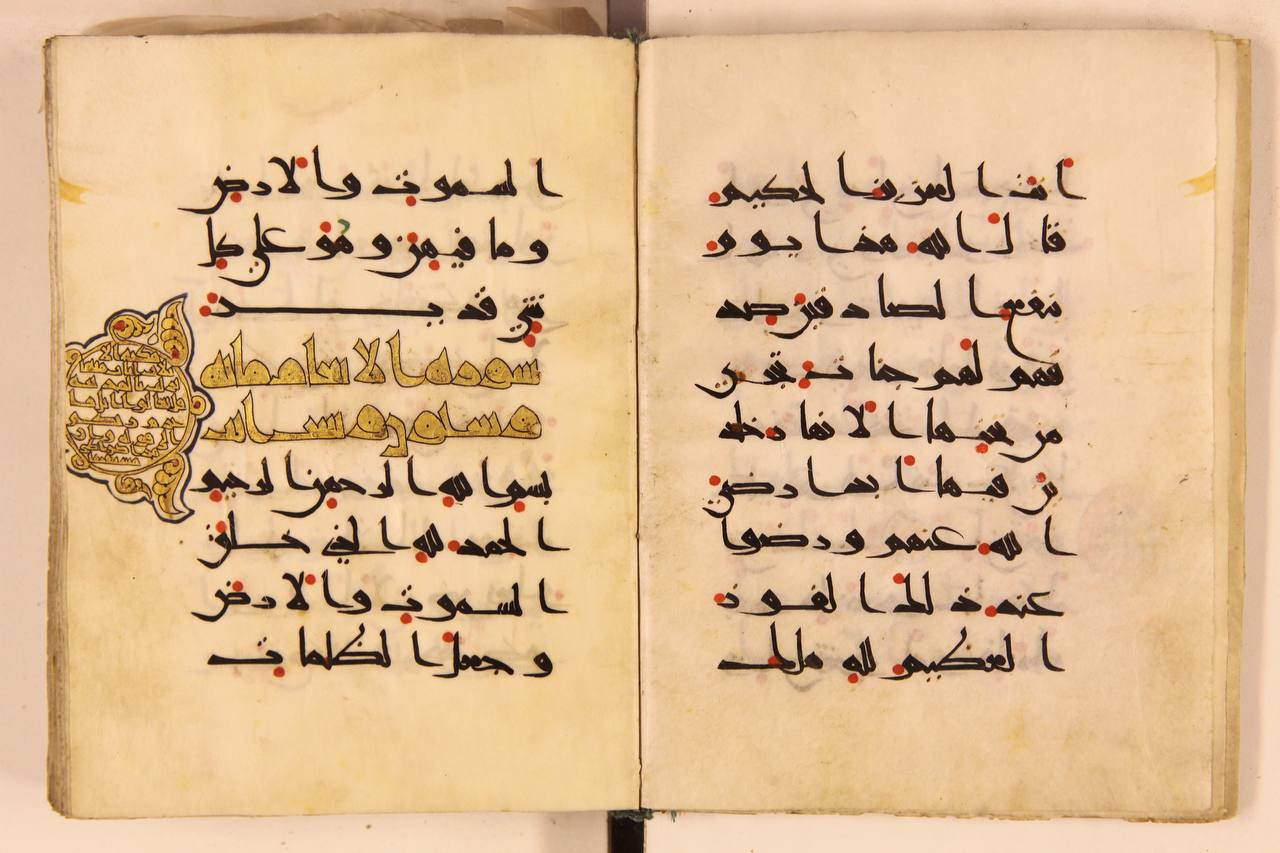 انت العزيز الحكيم
قال الله هذا يوم
ينفع الصادقين صد
قهم لهم جنات تجري
من تحتها الانهار خلد
ين فيها ابدا رضي
الله عنهم ورضوا
عنه ذلك الفوز
العظيم لله ملك
السموت والارض
وما فيهن وهو على كل
شي قدير
سورة الانعام مائة
وستون
بسم الله الرحمن الرحيم
الحمد لله الذي خلق
السموت والارض
وجعل الظلمات